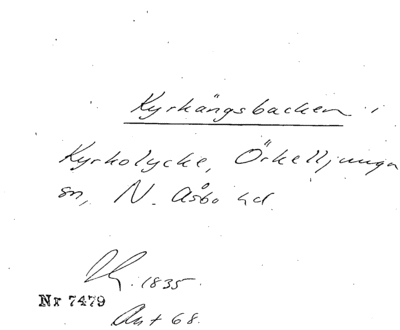 Kyrkängsbacken i
Kyrkolycke, Örkelljunga
sn, N. Åsbo hd.
1835.
Nr 7479
Ant 68.